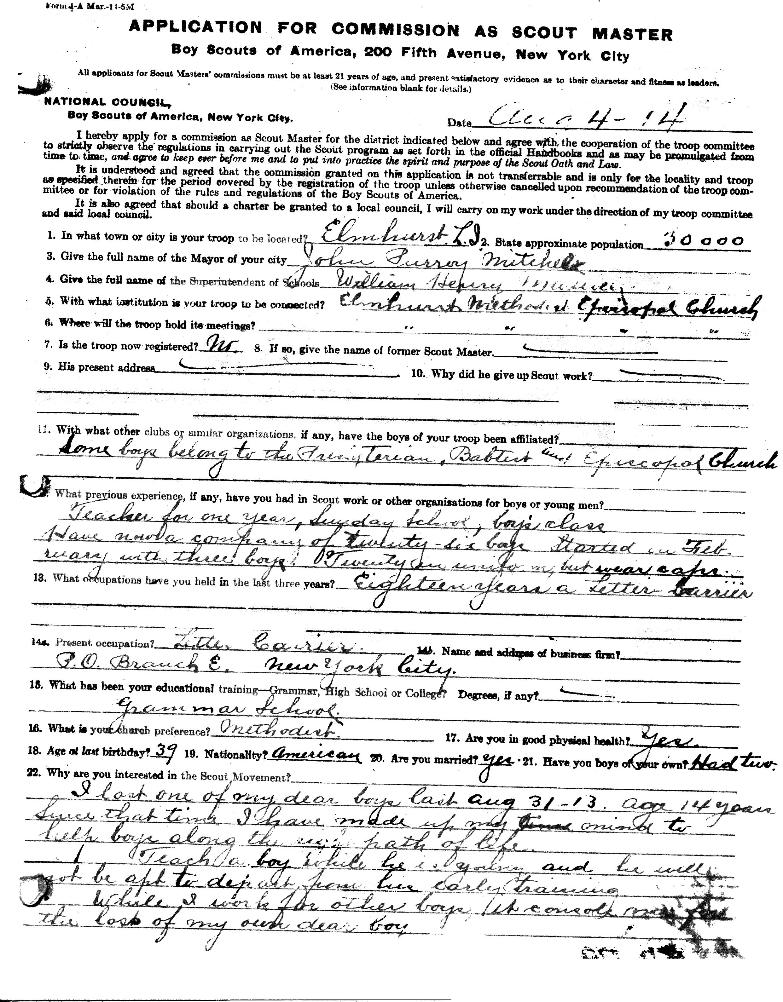 Form 4-A Mar.-14-5M
APPLICATION FOR COMMISSION AS SCOUT MASTER
Boy Scouts of America, 200 Fifth Avenue, New York City
All applicants for Scout Masters' commissions must be at least 21 years of age, and present satisfactory evidence as to their character and fitness as leaders.
(See information blank for details.)
NATIONAL COUNCIL,
Boy Scouts of America, New York City.
Date Aug 4-14
I hereby apply for a commission as Scout Master for the district indicated below and agree with the cooperation of the troop committee
to strictly observe the regulations in carrying out the Scout program as set forth in the official Handbooks and as may be promulgated from
time to time, and agree to keep ever before me and to put into practice the spirit and purpose of the Scout Oath and Law.
It is understood and agreed that the commission granted on this application is not transferrable and is only for the locality and troop
as specified therein for the period covered by the registration of the troop unless otherwise cancelled upon recommendation of the troop com-
mittee or for violation of the rules and regulations of the Boy Scouts of America.
It is also agreed that should a charter be granted to a local council, I will carry on my work under the direction of my troop committee
and said local council.
1. In what town or city is your troop to be located? Elmhurst L.I 2. State approximate population 30000
3. Give the full name of the Mayor of your city John Purroy Mitchel
4. Give the full name of the Superintendent of Schools William Henry
5. With what institution is your troop to be connected? Elmhurst Methodist Episcopal Church
6. Where will the troop hold its meetings? " " " "
7. Is the troop now registered? No. 8. If so, give the name of former Scout Master.
9. His present address 10. Why did he give up Scout work?
11. With what other clubs or similar organizations, if any, have the boys of your troop been affiliated?
Some boys belong to the Presyterian, Babtist and Episcopal Church
What previous experience, if any, have you had in Scout work or other organisations for boys or young men?
Teacher for one year, Sunday School, boys class
Have now a company of twenty-six boys Started in Feb
ruary with three boys. Twenty in uniform, but wear caps.
13. What occupations have you held in the last three years? Eighteen years a Letter Carrier
14a. Present occupation? Letter Carrier. 14b. Name and address of business firm?
P.O. Branch E. New York City.
15. What has been your educational training—Grammar, High School or College? Degrees, if any?
Grammar School.
16. What is your church preference? Methodist 17. Are you in good physical health? Yes.
18. Age at last birthday? 39 19. Nationality? American 20. Are you married? yes. 21. Have you boys of your own? Had two.
22. Why are you interested in the Scout Movement?
I lost one of my dear boys last aug 31-13. age 14 years
Since that time I have made up my mind to
help boys along the path of life.
Teach a boy while he is young and he will
not be apt to depart from his early training
While I work for other boys, it consols me for
the loss of my own dear boy